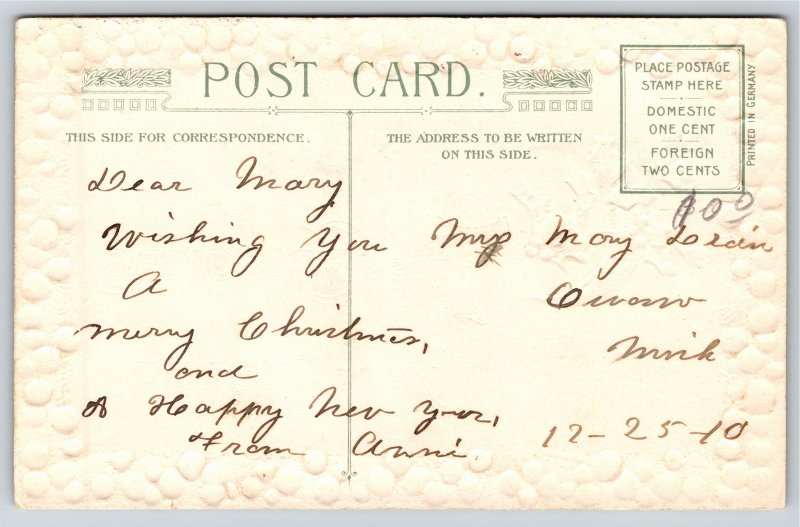 POST CARD.
PLACE POSTAGE
STAMP HERE
DOMESTIC
ONE CENT
FOREIGN
TWO CENTS
PRINTED IN GERMANY
THIS SIDE FOR CORRESPONDENCE.
THE ADDRESS TO BE WRITTEN
ON THIS SIDE.
Dear Mary
Wishing You
A
Merry Christmas,
and
A Happy New Year,
From Anni.
100
Mary
Owosso
Mich
12-25-10